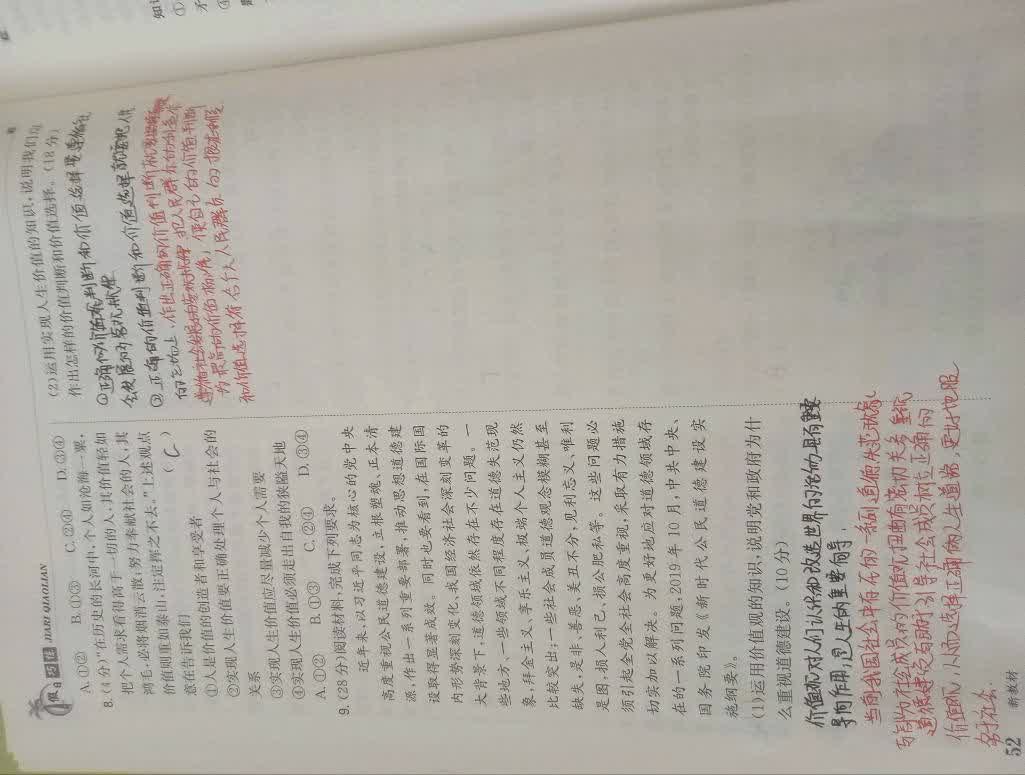 假日习题 JIARI QIAOLIAN
A.①② B.①③ C.②④ D.③④
8.(4分)“在历史的长河中,个人如沧海一粟,
把个人需求看得高于一切的人,其价值轻如
鸿毛,必将烟消云散;努力奉献社会的人,其
价值则重如泰山,注定挥之不去。”上述观点
意在告诉我们 ( C )
①人是价值的创造者和享受者
②实现人生价值要正确处理个人与社会的
关系
③实现人生价值应尽量减少个人需要
④实现人生价值必须走出自我的狭隘天地
A.①② B.①③ C.②④ D.③④
9.(28分)阅读材料,完成下列要求。
近年来,以习近平同志为核心的党中央
高度重视公民道德建设,立根塑魂、正本清
源,作出一系列重要部署,推动思想道德建
设取得显著成效。同时也要看到,在国际国
内形势深刻变化、我国经济社会深刻变革的
大背景下,道德领域依然存在不少问题。一
些地方、一些领域不同程度存在道德失范现
象,拜金主义、享乐主义、极端个人主义仍然
比较突出;一些社会成员道德观念模糊甚至
缺失,是非、善恶、美丑不分,见利忘义、唯利
是图,损人利己、损公肥私等。这些问题必
须引起全党全社会高度重视,采取有力措施
切实加以解决。为更好地应对道德领域存
在的一系列问题,2019年10月,中共中央、
国务院印发《新时代公民道德建设实
施纲要》。
(1)运用价值观的知识,说明党和政府为什
么重视道德建设。(10分)
价值观对人们认识和改造世界的活动具有重要
导向作用,是人生的重要向导,
当前我国社会中存在的一系列道德失范现象
与部分社会成员的价值观扭曲有密切关系重视
道德建设有助于引导社会成员树立正确的
价值观,从而选择正确的人生道路,更好地服
务于社会.
(2)运用实现人生价值的知识,说明我们应
作出怎样的价值判断和价值选择。(18分)
①正确的价值判断和价值选择要遵循社
会发展的客观规律
②正确的价值判断和价值选择就要把人民
的立场上,作出正确的价值判断
为最高的价值标准,使自己的价值判断
和价值选择符合广大人民群众的
52 新教材
知识
①